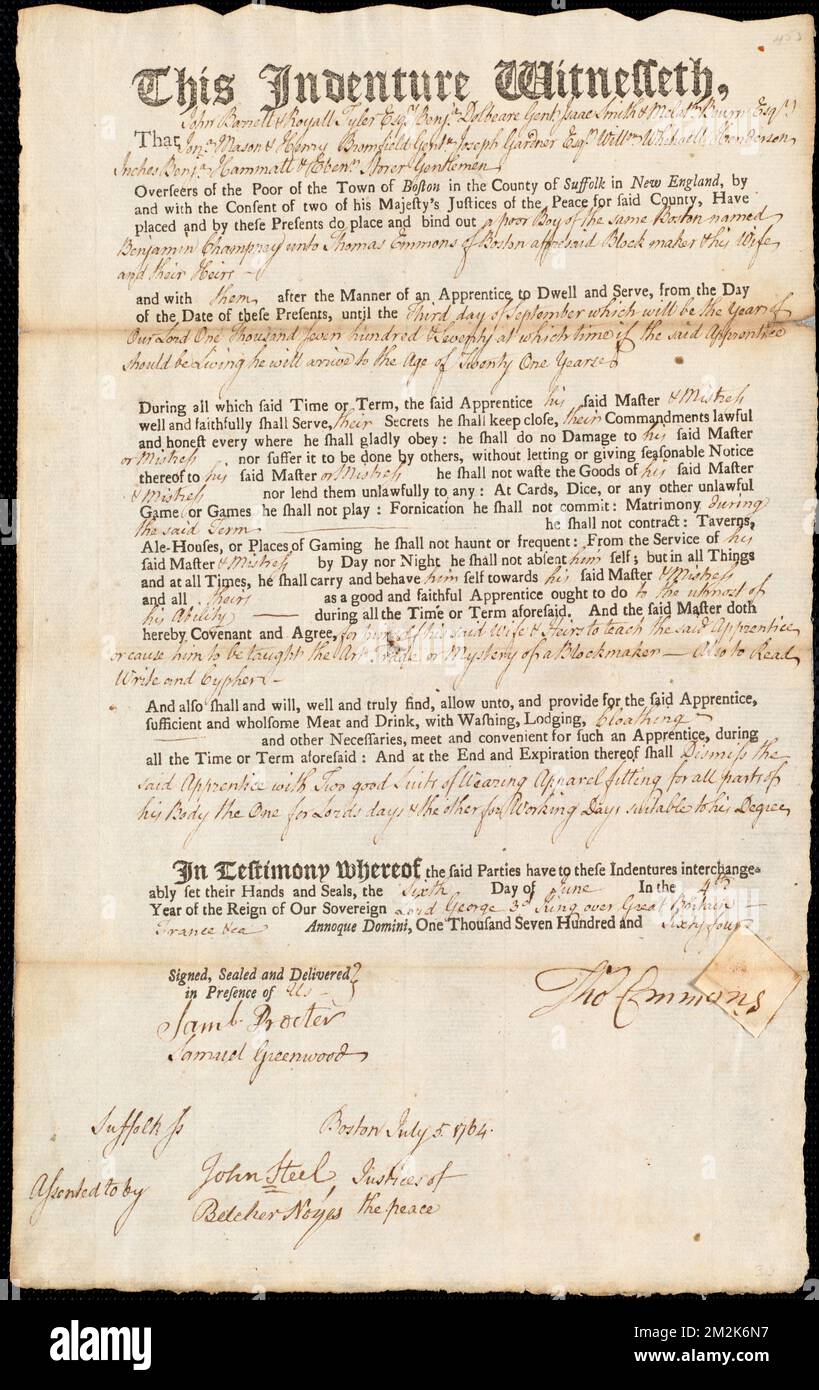 453
This Indenture Witnesseth,
John Barrett & Royall Tyler Esqrs. Benja. Dolbeare Gent. Isaac Smith & Melatih Bourn Esqrs
That Jona. Mason & Henry Bromfield Gentn. Joseph Gardner Esqr. Willm. Whitwell Henderson
Inches Benja. Hammatt & Ebenr. Storer Gentlemen
Overseers of the Poor of the Town of Boston in the County of Suffolk in New England, by
and with the Consent of two of his Majesty's Justices of the Peace for said County, Have
placed and by these Presents do place and bind out a poor Boy of the same Boston named
Benjamin Champney unto Thomas Emmons of Boston afforesaid Block maker & his Wife
and their Heirs
and with them after the Manner of an Apprentice to Dwell and Serve, from the Day
of the Date of these Presents, until the Third day of September which will be the Year of
Our Lord One Thousand seven hundred & Seventy at which time if the said Apprentice
should be Living he will arrive to the Age of Twenty One Years
During all which said Time or Term, the said Apprentice his said Master & Mistress
well and faithfully shall Serve, their Secrets he shall keep close, their Commandments lawful
and honest every where he shall gladly obey: he shall do no Damage to his said Master
or Mistress nor suffer it to be done by others, without letting or giving seasonable Notice
thereof to his said Master or Mistress he shall not waste the Goods of his said Master
& Mistress nor lend them unlawfully to any: At Cards, Dice, or any other unlawful
Game or Games he shall not play: Fornication he shall not commit: Matrimony during
the said Term he shall not contract: Taverns,
Ale-Houses, or Places of Gaming he shall not haunt or frequent: From the Service of his
said Master & Mistress by Day nor Night he shall not absent him self; but in all Things
and at all Times, he shall carry and behave him self towards his said Master & Mistress
and all theirs as a good and faithful Apprentice ought to do to the utmost of
his Ability during all the Time or Term aforesaid. And the said Master doth
hereby Covenant and Agree, for himself his said Wife & Heirs to teach the said Apprentice
or cause him to be taught the Art Trade or Mystery of a Blockmaker — Also to Read
Write and Cypher
And also shall and will, well and truly find, allow unto, and provide for the said Apprentice,
sufficient and wholsome Meat and Drink, with Washing, Lodging, Cloathing
and other Necessaries, meet and convenient for such an Apprentice, during
all the Time or Term aforesaid: And at the End and Expiration thereof shall Dismiss the
said Apprentice with Two good Suits of Wearing Apparel fitting for all parts of
his Body the One for Lords days & the other for Working Days suitable to his Degree
In Testimony whereof the said Parties have to these Indentures interchange-
ably set their Hands and Seals, the Sixth Day of June In the 4th
Year of the Reign of Our Sovereign Lord George 3d King over Great Britain
France &ca Annoque Domini, One Thousand Seven Hundred and Sixty four
Signed, Sealed and Delivered
in Presence of Us
Thos Emmons
Saml. Procter
Samuel Greenwood
Suffolk ss Boston July 5. 1764.
Assented to by John Steel, Justices of
Belcher Noyes the peace
alamy
Image ID: 2M2K6N7
www.alamy.com